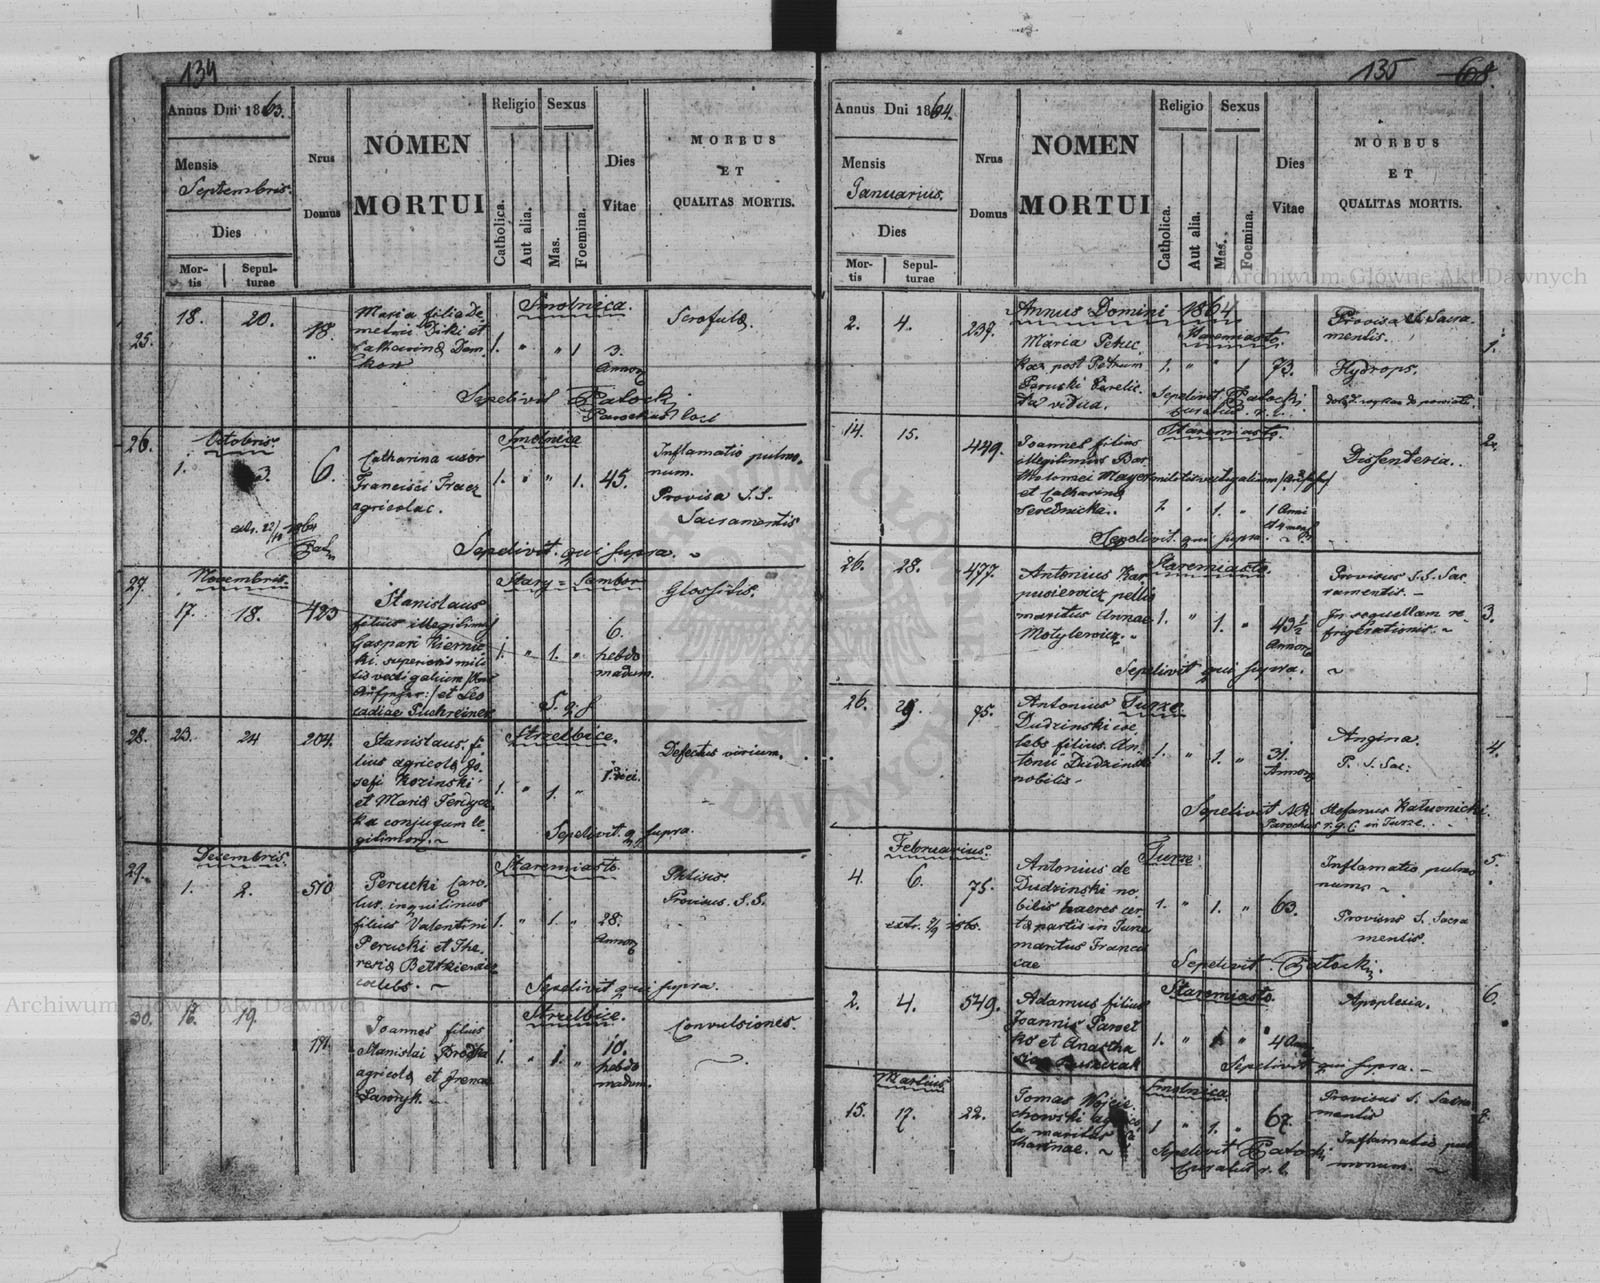 134
Annus Dni 1863.
Mensis
Septembris.
Dies
Mor-
tis
Sepul-
turae
Nrus
Domus
NOMEN
MORTUI
Religio
Catholica.
Aut alia.
Sexus
Mas.
Foemina.
Dies
Vitae
MORBUS
ET
QUALITAS MORTIS.
25.
18. 20. 18.
Maria filia De-
metrii
Catharina Dem
Smolnica.
1. " " 1 3.
Annor
Scrofula.
Sepelivit Patocki
Parochus loci
26.
Octobris
1. 3. 6.
Catharina uxor
Francisci Fracz
agricolae.
Smolnica
1. " " 1. 45.
Inflamatio pulmo-
num.
Provisa S.S.
Sacramentis
Sepelivit qui supra.
27.
Novembris.
17. 18. 423
Stanislaus
filius illegitimus
Gaspari Kiernic
ki superioris mili
tis vectigalium
et Leo
cadiae Puchreiner
Stary-Sambor
1. " 1. " 6.
hebdo
madum.
Glossitis.
S. q. s
28.
23. 24 204.
Stanislaus fi
lius agricola Jo-
sefi Kozinski
et Maria
ka conjugum le-
gitimor.
Strzelbice.
1. " 1. " 1 diei.
Defectus virium.
Sepelivit q supra.
29.
Decembris.
1. 2. 510
Perucki Caro-
lus inquilinus
filius Valentini
Perucki et The-
resia
coelebs.
Staremiasto
1. " 1. " 28.
Annor
Phtisis.
Provisus S.S.
Sepelivit qui supra.
30.
16. 19. 191.
Joannes filius
Stanislai
agricola et Irena
Ławryk.
Strzelbice.
1. " 1. " 10.
hebdo
madum.
Convulsiones.
135 68.
Annus Dni 1864.
Mensis
Januarius.
Dies
Mor-
tis
Sepul-
turae
Nrus
Domus
NOMEN
MORTUI
Religio
Catholica.
Aut alia.
Sexus
Mas.
Foemina.
Dies
Vitae
MORBUS
ET
QUALITAS MORTIS.
Annus Domini 1864
2. 4. 237.
Maria Petruc
post Petrum
Peruski
vidua.
Staremiasto
1. " " 1 73.
Provisa S. Sacra-
mentis.
Hydrops.
1.
Sepelivit Patocki
curatus r. l.
14. 15. 449.
Joannes filius
illegitimus Bar
tholomei Mayer militis vectigalium
et Catharina
Serednicka.
Staremiasto
1. 1 Anni
Dissenteria.
2.
Sepelivit qui supra.
26. 28. 477.
Antonius Kar
pusiewicz pellio
maritus Annae
Motylewicz.
Staremiasto.
1. " 1. " 49½
Annor
Provisus S.S. Sac
ramentis.
In sequellam re
frigerationis.
3.
Sepelivit qui supra.
26. 29. 75.
Antonius
Dudzinski coe
lebs filius An-
tonii Dudzinski
nobilis
Turze
1. " 1. " 31.
Annor
Angina.
P. S. Sac:
4.
Sepelivit AR. Stefanus Kałuonicki
Parochus r. g. C in Turze.
Februarius
4. 6. 75.
Antonius de
Dudzinski no
bilis haeres cer
ta partis in Turze
maritus Francis
cae
Turze
1. " 1. " 63.
Inflamatio pulmo
num
Provisus S. Sacra
mentis.
5.
Sepelivit Patocki.
2. 4. 549.
Adamus filius
Joannis Pawel
ko et Anastha
sia
Staremiasto.
1. " 1 " 4 Ann
Apoplexia.
6.
Sepelivit qui supra.
Martius
15. 17. 22.
Tomas Wojcie-
chowski agrico
la maritus Ca
tharinae.
Smolnica
1 " 1. " 67.
Provisus S. Sacra
mentis
Inflamatio pul
monum.
7.
Sepelivit Patocki
curatus r. l.
Archiwum Główne Akt Dawnych
Archiwum Główne Akt Dawnych